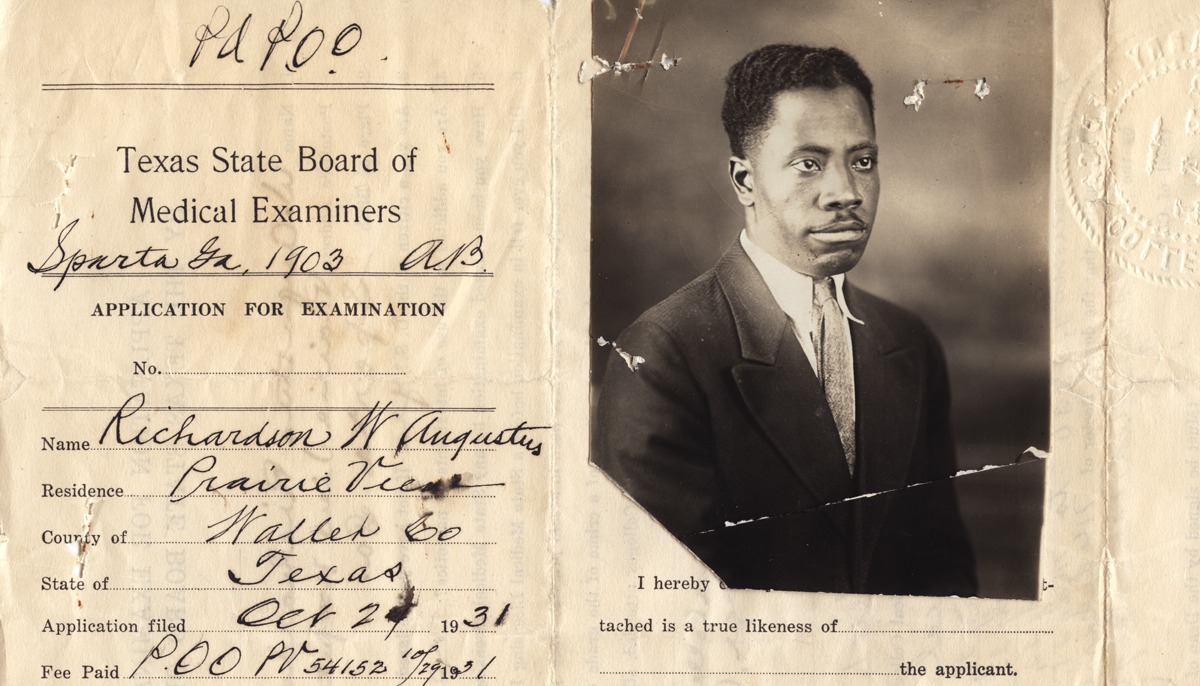 Pd P.O.O.
Texas State Board of
Medical Examiners
Sparta Ga, 1903 A.B.
APPLICATION FOR EXAMINATION
No.
Name Richardson W Augustus
Residence Prairie View
County of Waller Co
State of Texas
Application filed Oct 29 1931
Fee Paid P.OO PV 54152 10/29 1931
I hereby
t-
tached is a true likeness of
the applicant.